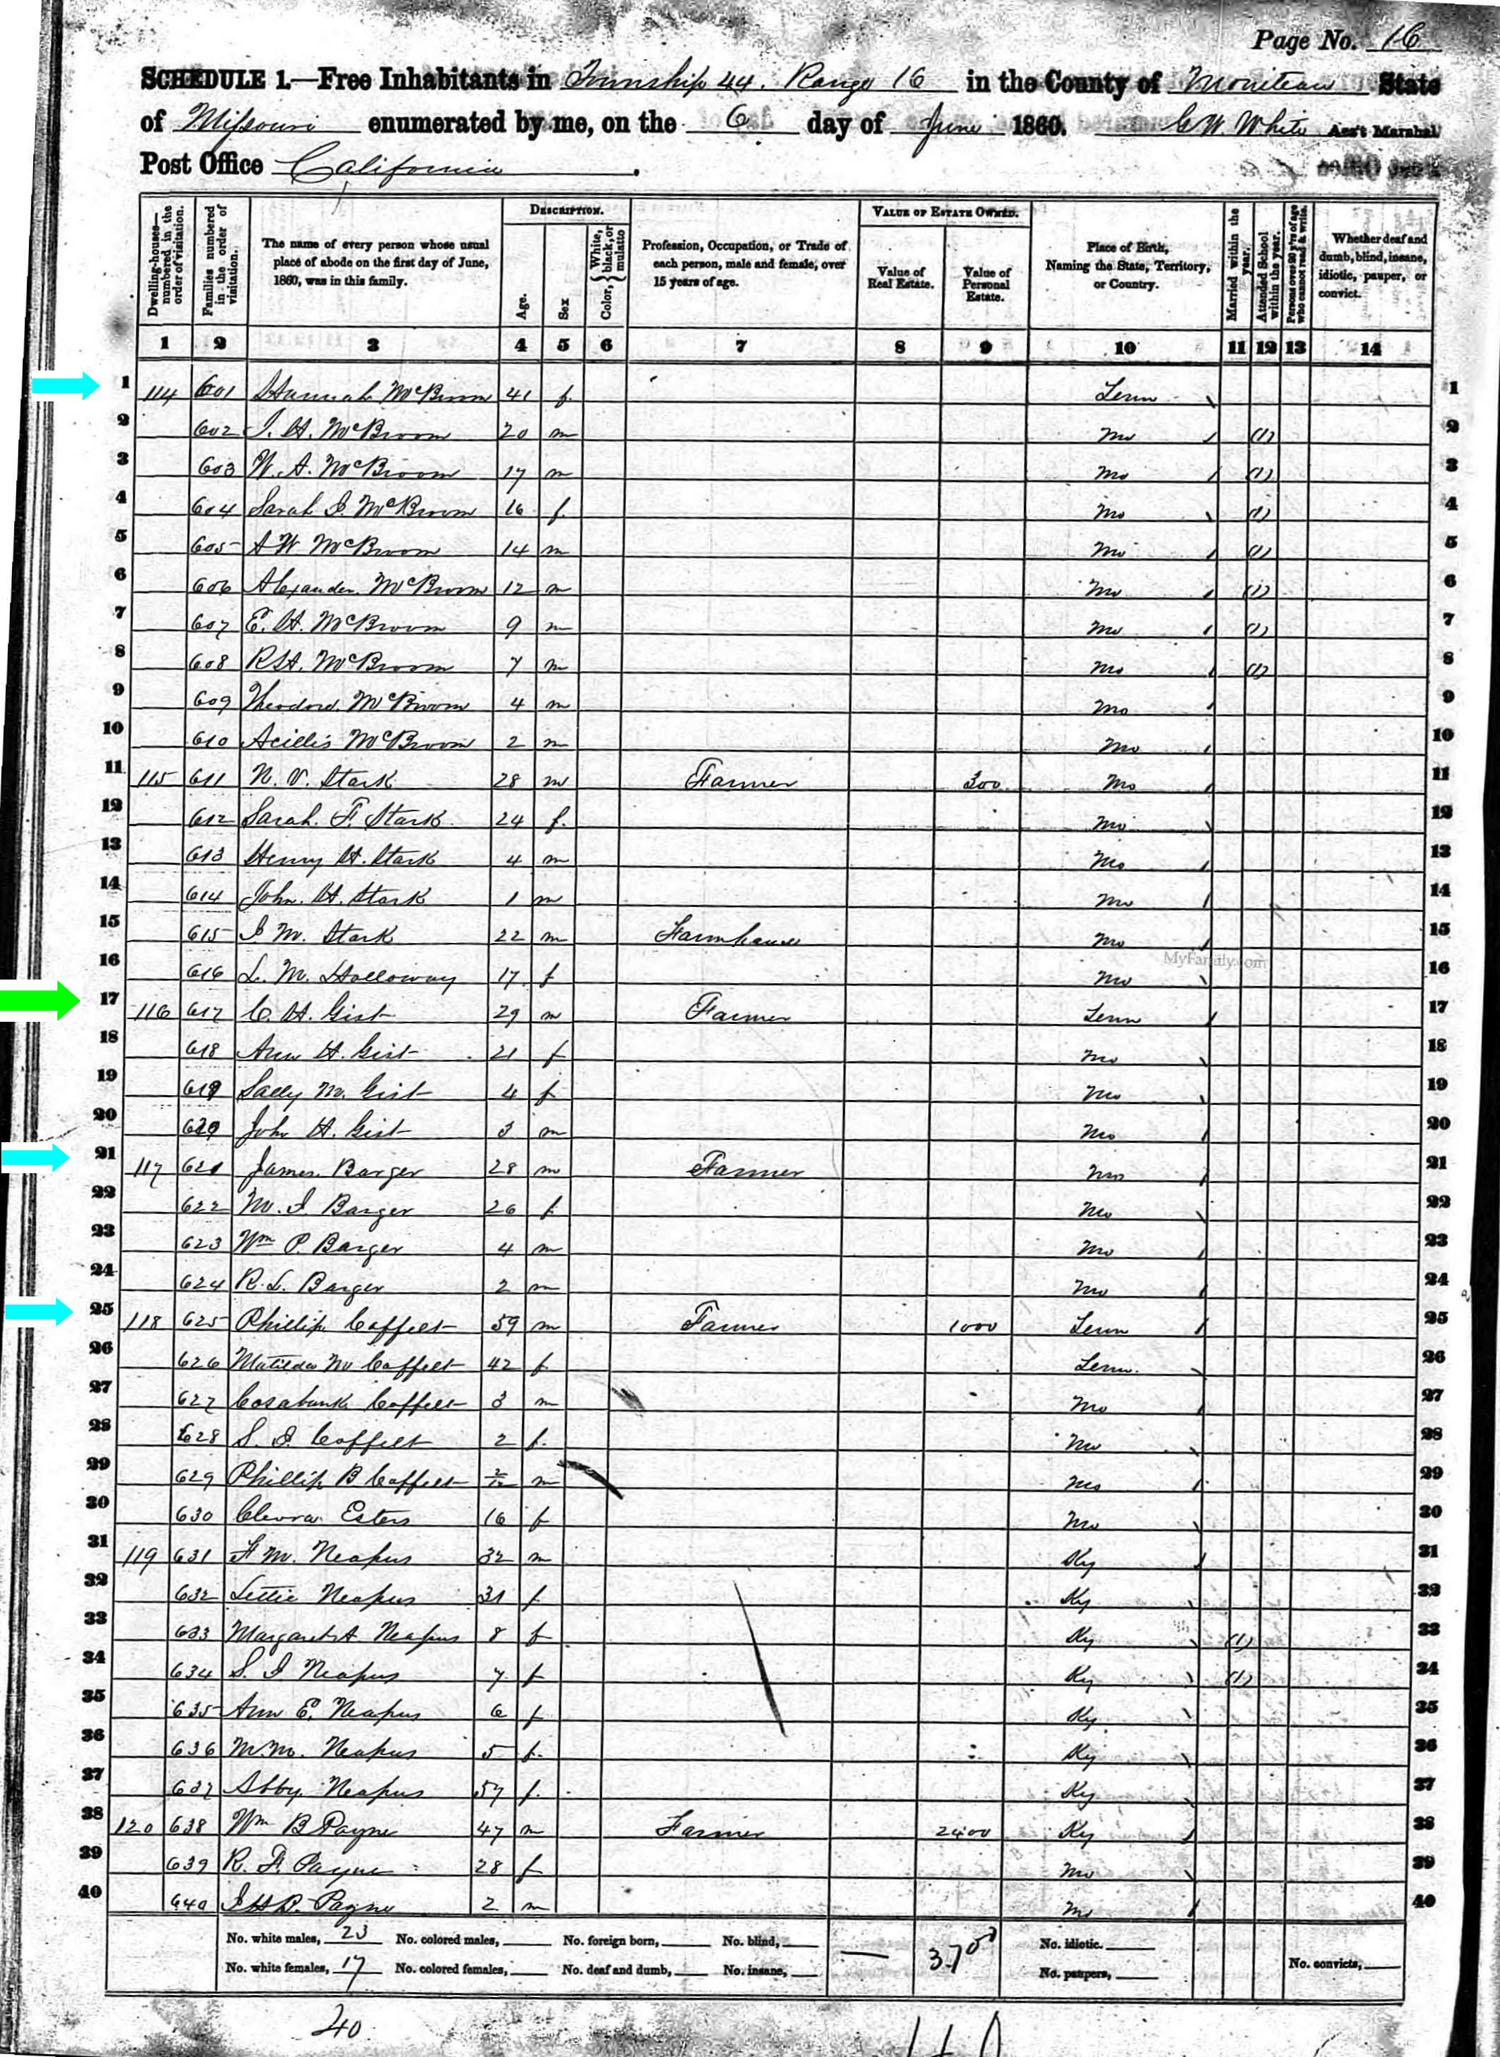 Page No. 16
SCHEDULE 1.—Free Inhabitants in Township 44. Range 16 in the County of Moniteau State
of Missouri enumerated by me, on the 6 day of June 1860. G W White Ass't Marshal
Post Office California.
Dwelling-houses—numbered in the order of visitation.
Families numbered in the order of visitation.
The name of every person whose usual place of abode on the first day of June, 1860, was in this family.
DESCRIPTION.
Age.
Sex
Color, { White, black, or mulatto
Profession, Occupation, or Trade of each person, male and female, over 15 years of age.
VALUE OF ESTATE OWNED.
Value of Real Estate.
Value of Personal Estate.
Place of Birth, Naming the State, Territory, or Country.
Married within the year.
Attended School within the year.
Persons over 20 y'rs of age who cannot read & write.
Whether deaf and dumb, blind, insane, idiotic, pauper, or convict.
1 2 3 4 5 6 7 8 9 10 11 12 13 14
1 114 601 Hannah McBroom 41 f Tenn 1
2 602 J. H. McBroom 20 m Mo (1) 2
3 603 W. A. McBroom 17 m Mo (1) 3
4 604 Sarah J. McBroom 16 f Mo (1) 4
5 605 A W McBroom 14 m Mo (1) 5
6 606 Alexander McBroom 12 m Mo (1) 6
7 607 E. H. McBroom 9 m Mo (1) 7
8 608 R H. McBroom 7 m Mo (1) 8
9 609 Theodord McBroom 4 m Mo 9
10 610 Acillis McBroom 2 m Mo 10
11 115 611 N. V. Stark 28 m Farmer 300 Mo 11
12 612 Sarah F. Stark 24 f. Mo 12
13 613 Henry H. Stark 4 m Mo 13
14 614 John H. Stark 1 m Mo 14
15 615 J. M. Stark 22 m Mo 15
16 616 L. M. Holloway 17 f Mo 16
MyFamily.com
17 116 617 C. H. Gist 29 m Farmer Tenn 17
18 618 Ann H. Gist 21 f Mo 18
19 619 Sally M. Gist 4 f Mo 19
20 620 John H. Gist 3 m Mo 20
21 117 621 James Barger 28 m Farmer Mo 21
22 622 M. J Barger 26 f Mo 22
23 623 Wm P. Barger 4 m Mo 23
24 624 R. L. Barger 2 m Mo 24
25 118 625 Phillip Coffelt 59 m Farmer 1000 Tenn 25
26 626 Matilda M Coffelt 42 f Tenn. 26
27 627 Coffelt 3 m Mo 27
28 628 S. J. Coffelt 2 f. Mo 28
29 629 Phillip B Coffelt 2/12 m Mo 29
30 630 Esters 16 f Mo 30
31 119 631 M. Neapus 32 m Ky 31
32 632 Lettie Neapus 31 f Ky 32
33 633 Margaret A. Neapus 8 f Ky (1) 33
34 634 S. J Neapus 7 f Ky (1) 34
35 635 Ann E. Neapus 6 f Ky 35
36 636 M. M. Neapus 5 f. Ky 36
37 637 Abby Neapus 57 f. Ky 37
38 120 638 Wm B Payne 47 m Farmer 2400 Ky 38
39 639 R. F. Payne 28 f Mo 39
40 640 Payne 2 m Mo 40
No. white males, 23 No. colored males, No. foreign born, No. blind, — 3700 No. idiotic.
No. white females, 17 No. colored females, No. deaf and dumb, No. insane, No. paupers, No. convicts,
40